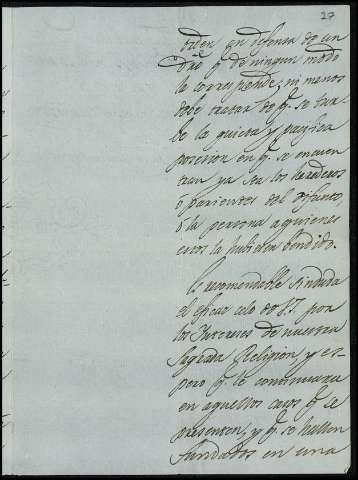 27
orden en defensa de un
dro q.e de ningun modo
le corresponde; ni menos
debe tratar de q.e se tur
be la quieta y pacifica
posesion en q.e se encuen
tran ya sea los herederos
ó parientes del difunto,
ó la persona a quienes
esos la hubiesen bendido.
Es recomendable sinduda
el eficaz celo de V. por
los Intereses de nuestra
Sagrada Religion, y es-
pero q.e le continuara
en aquellos casos q.e se
presenten, y q.e se hallen
fundados en una